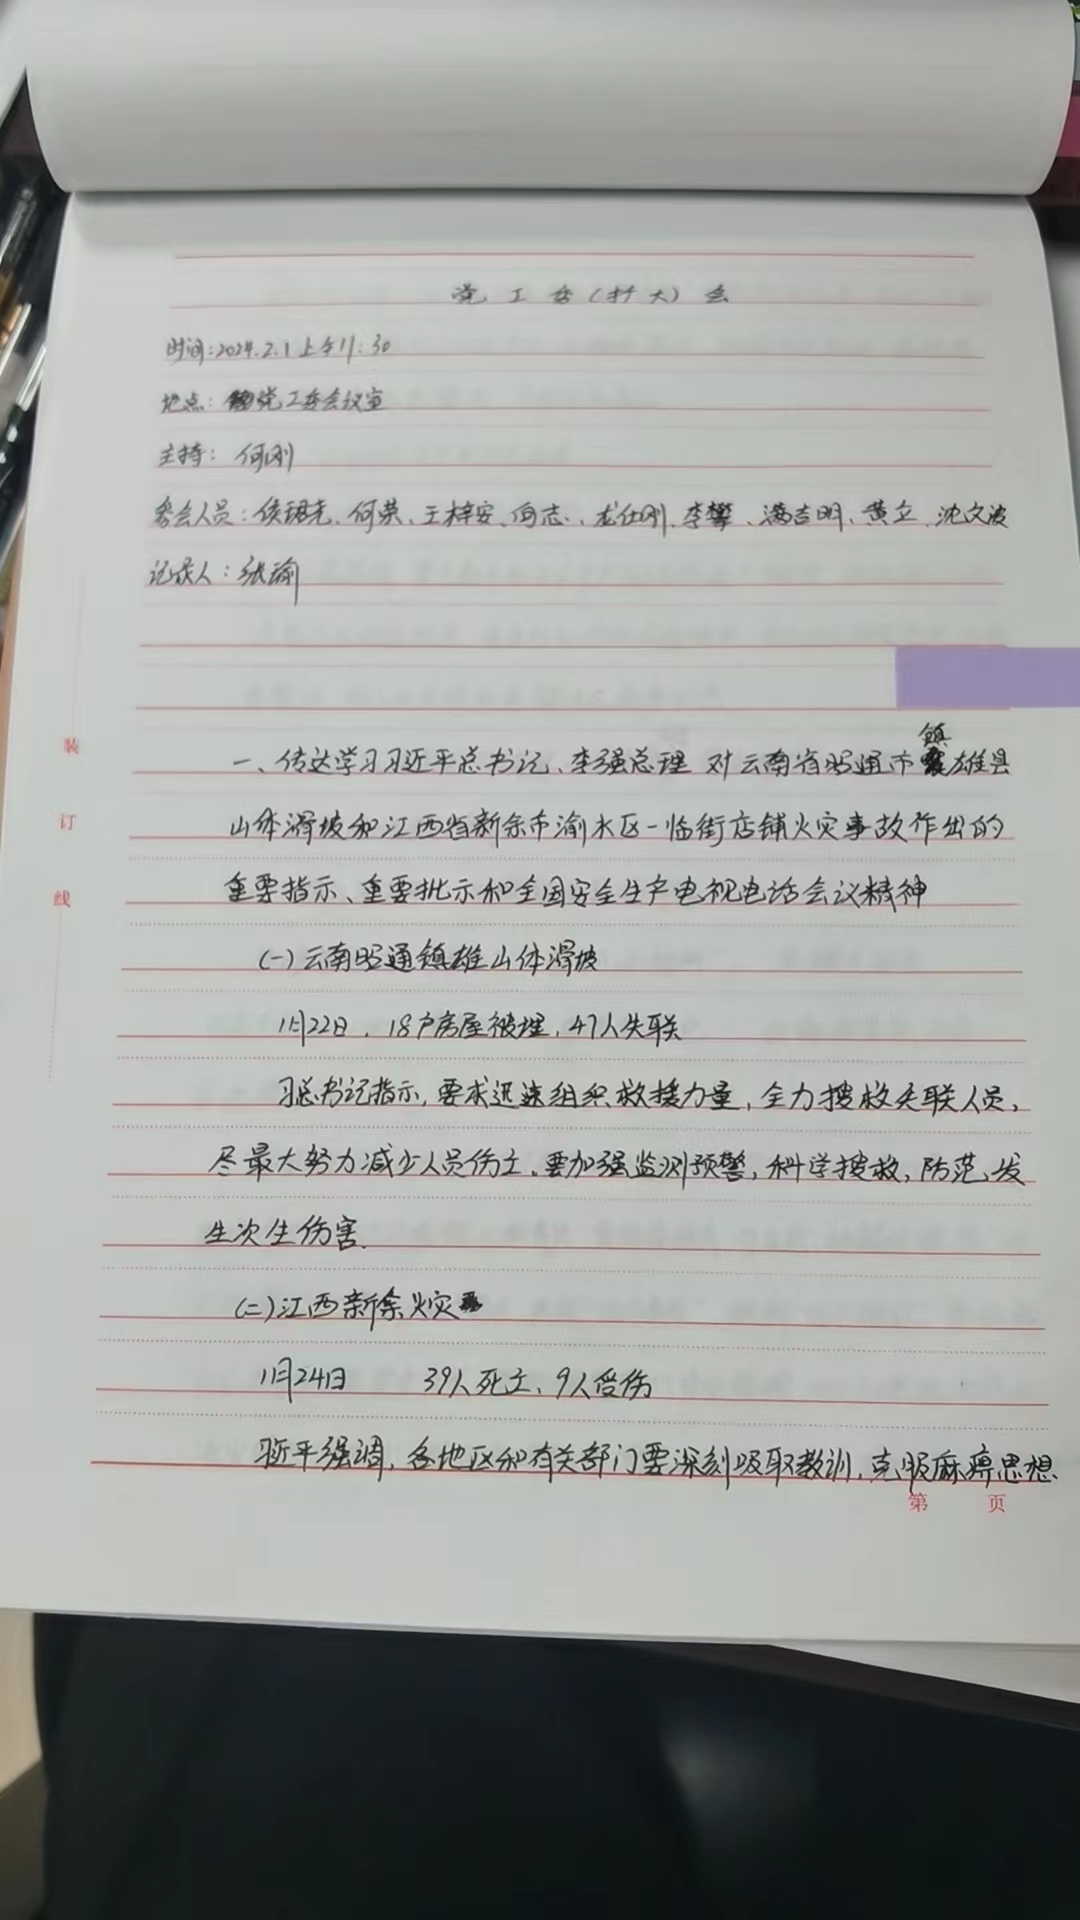 党工委(扩大)会
时间:2024.2.1上午11:30
地点:党工委会议室
主持:何刚
参会人员:侯珺尧、何荣、王梓安、向志、龙仕刚、李攀、满吉明、黄立、沈文波
记录人:张渝
镇
一、传达学习习近平总书记、李强总理对云南省昭通市雄县
山体滑坡和江西省新余市渝水区一临街店铺火灾事故作出的
重要指示、重要批示和全国安全生产电视电话会议精神
(一)云南昭通镇雄山体滑坡
1月22日,18户房屋被埋,47人失联
习总书记指示,要求迅速组织救援力量,全力搜救失联人员,
尽最大努力减少人员伤亡、要加强监测预警,科学搜救,防范发
生次生伤害.
(二)江西新余火灾
1月24日 39人死亡、9人受伤
习近平强调,各地区和有关部门要深刻吸取教训,克服麻痹思想
装
订
线
第 页